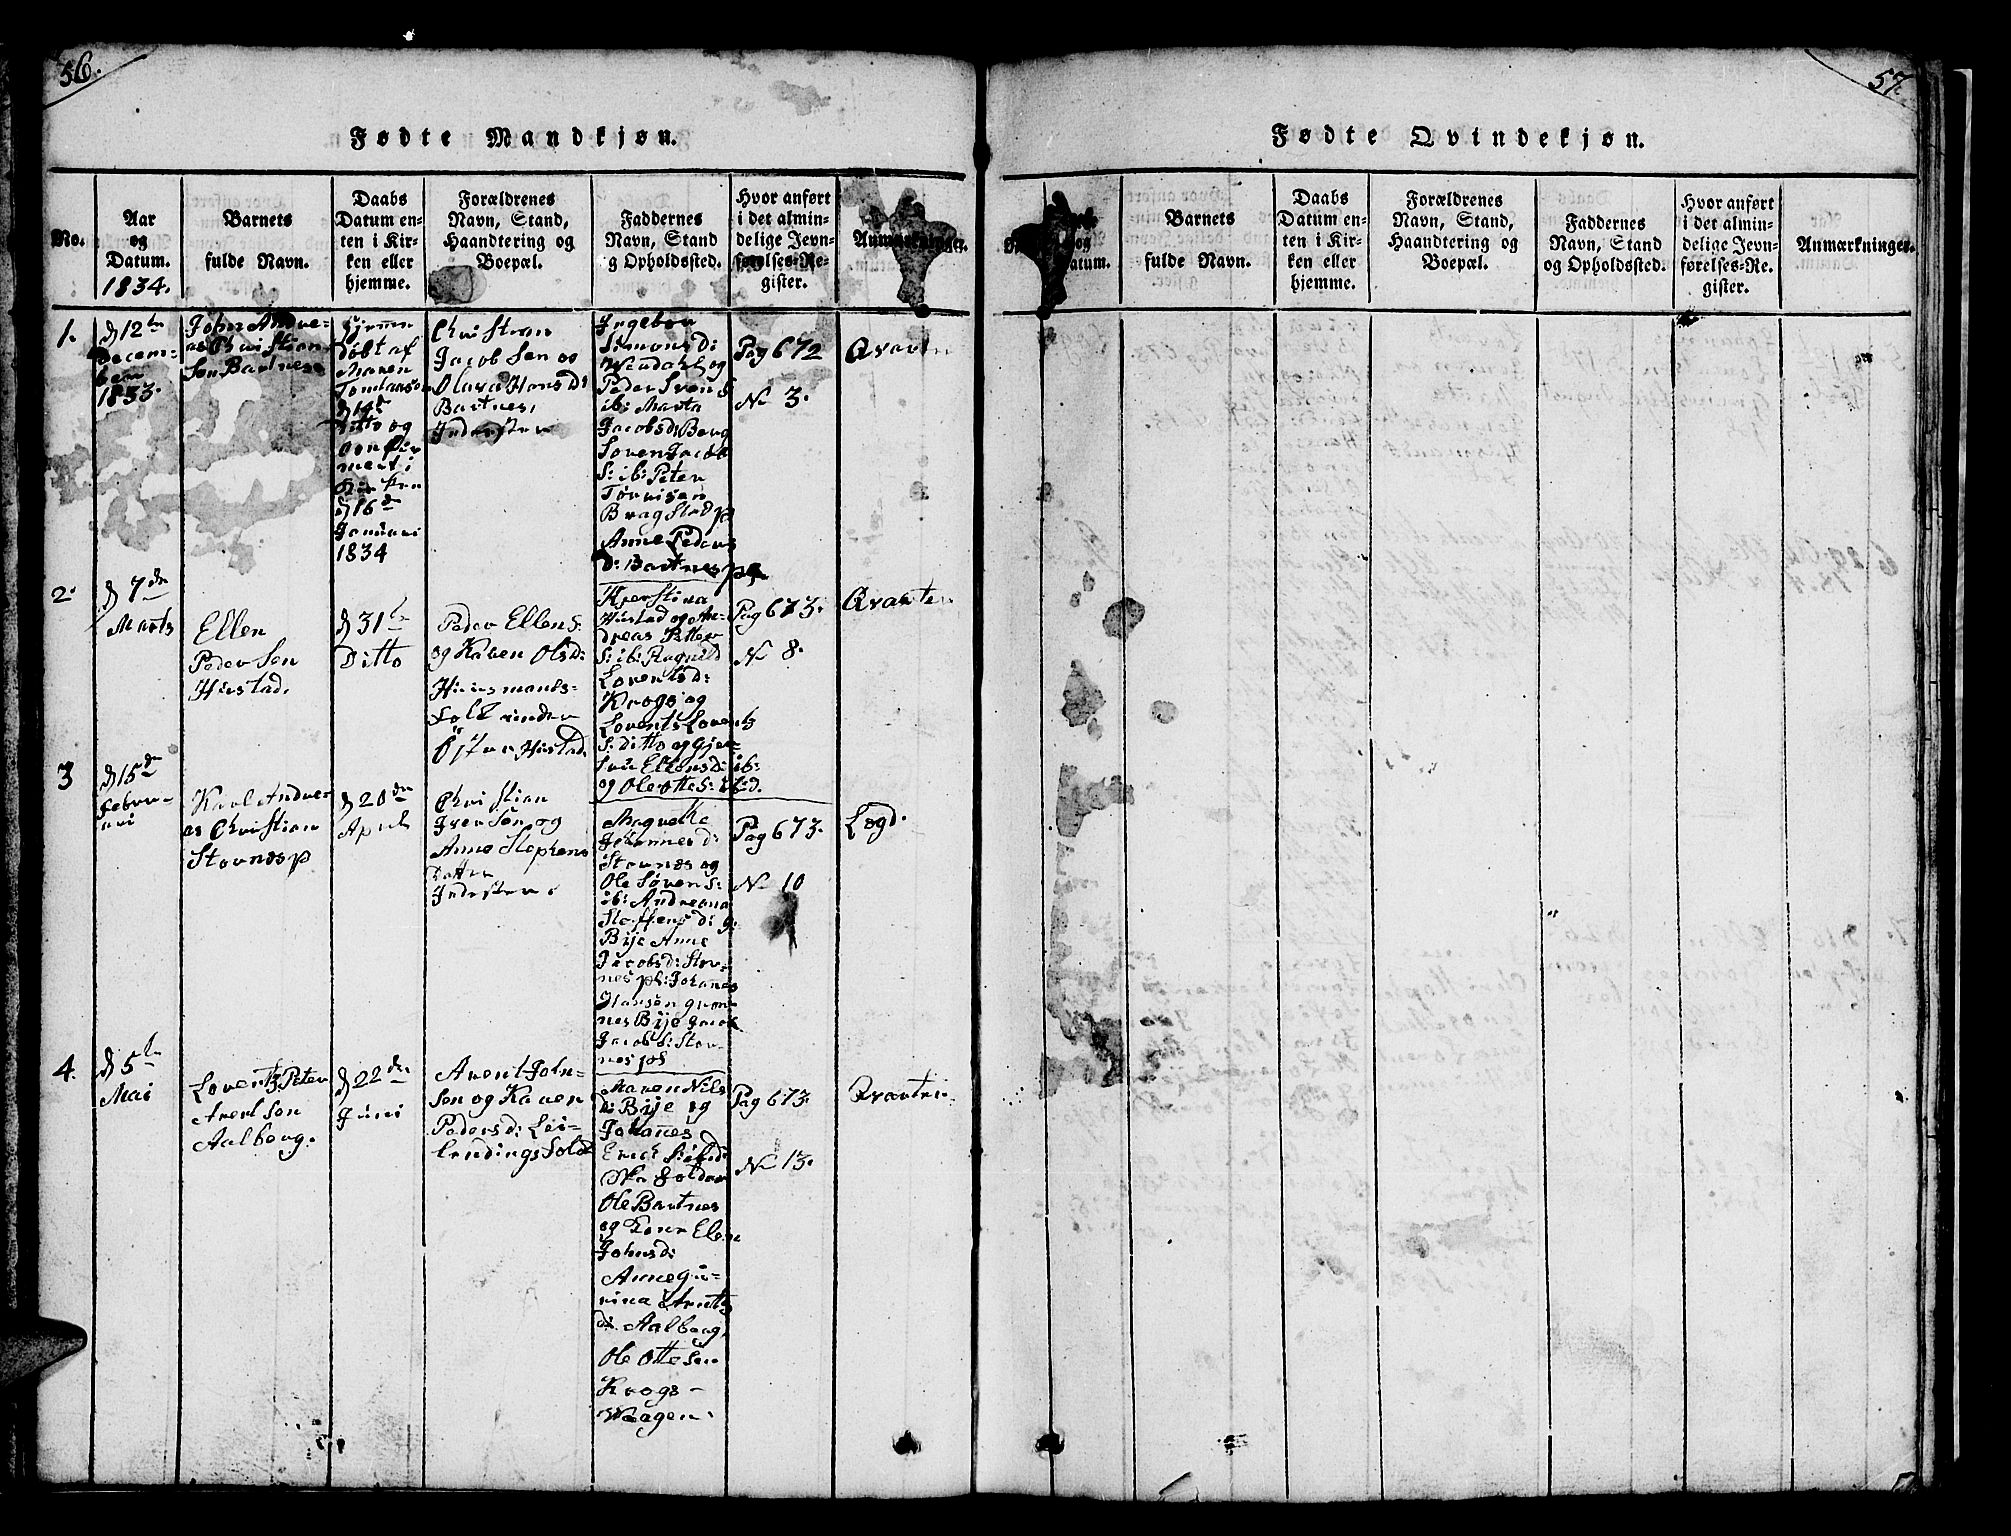 56.
Fødte Mandkjøn.
No.
Aar
og
Datum.
1834.
Barnets
fulde Navn.
Daabs
Datum en-
ten i Kir-
ken eller
hjemme.
Forældrenes
Navn, Stand,
Haandtering og
Boepæl.
Faddernes
Navn, Stand
og Opholdssted.
Hvor anført
i det almin-
delige Jevn-
førelses-Re-
gister.
Anmærkninger.
1.
d 12te
Decem-
ber
1833.
John Andre-
as Christian
Sen Bartnes
hjemme
døbt af
Maren
Tomtaasen
d 14de
Ditto og
confir
mert i
Kirken
d 16de
Januari
1834
Christian
Jacob Sen og
Olava Hansd:
Bartnes,
Inderster
Ingebor
Simonsd:
Wendahl og
Peder Svend
ib: Marta
Jacobsd: Berg
Soren Jacob
S: ib: Peter
Tørrisen
Bragstad p
Anne Peders
D: Bartnes
Pag 672
No 3.
Qvarten
2.
d 7de
Marts
Ellen
Peder Sen
Hustad.
d 31te
Ditto
Peder Ellens:
og Karen Olsd:
Huusmands-
Folk under
Østre Hustad.
Kjerstina
Hustad og An-
dreas Petter
S: ib: Ragnild
Lorentsd:
Krogs og
Lorents Lorentz
S: ditto og Gjer-
trui Ellensd: ib:
og Ole Otte S: ibd.
Pag 673.
No 8.
Qvarten
3
d 15de
Febru-
ari
Karl Andre-
as Christian
Stornes p
d 20de
April
Christian
Iver Sen og
Anne Stephens
Datter
Inderster.
Magrethe
Johannesd:
Stornes og
Ole Sørens:
ib: Andreana
Steffens d: g:
Bije Anne
Jacobsd: Stor-
nes pl: Johanes
Hansen
nes Bije Jacob
Jacobs: Stor-
nes pl
Pag 673.
No 10
Løgd.
4.
d 5te
Mai
Lorentz Peter
Arent Sen
Aalberg.
d 22de
Juni
Arent John-
Sen og Karen
Pedersd: Lei-
lendings Folk
Maren Nils
D: Bije og
Johannes
Erich S: ibid:
Ole Bartnes
og Kone Elen
Johnsd:
Anne Gu-
rina Arentz
d: Aalberg,
Ole Otte Sen
Krogs-
Waagen.
Pag 673.
No 13.
Qvarten
57.
Fødte Qvindekjøn.
og
Datum.
Barnets
fulde Navn.
Daabs
Datum en-
ten i Kir-
ken eller
hjemme.
Forældrenes
Navn, Stand,
Haandtering og
Boepæl.
Faddernes
Navn, Stand
og Opholdssted.
Hvor anført
i det almin-
delige Jevn-
førelses-Re-
gister.
Anmærkninger.